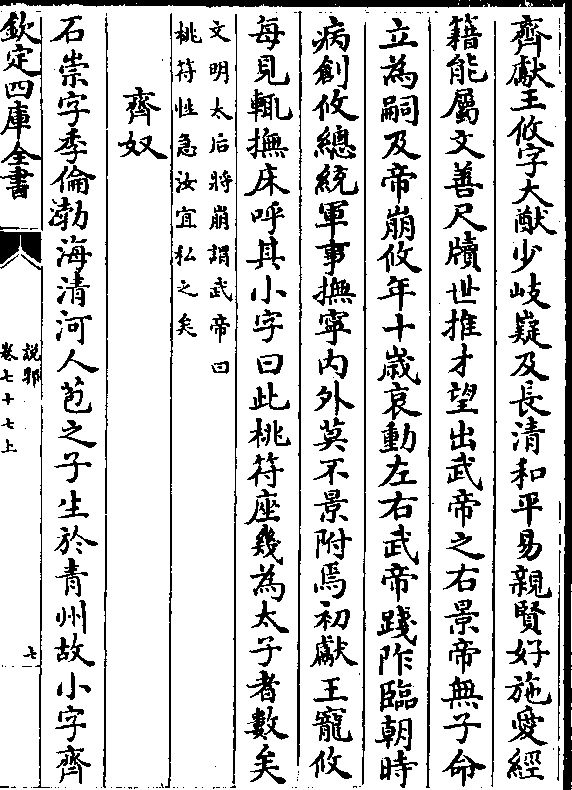 齊獻王攸字大猷少岐嶷及長清和平易親賢好施愛經
籍能屬文善尺牘世推才望出武帝之右景帝無子命
立為嗣及帝崩攸年十歲哀動左右武帝踐阼臨朝時
病創攸總統軍事撫寧内外莫不景附焉初獻王寵攸
每見輒撫床呼其小字曰此桃符座幾為太子者數矣
文明太后將崩謂武帝曰
桃符性急汝宜私之矣
齊奴
石崇字季倫渤海清河人苞之子生於青州故小字齊
欽定四庫全書
説郛
卷七十七上
七